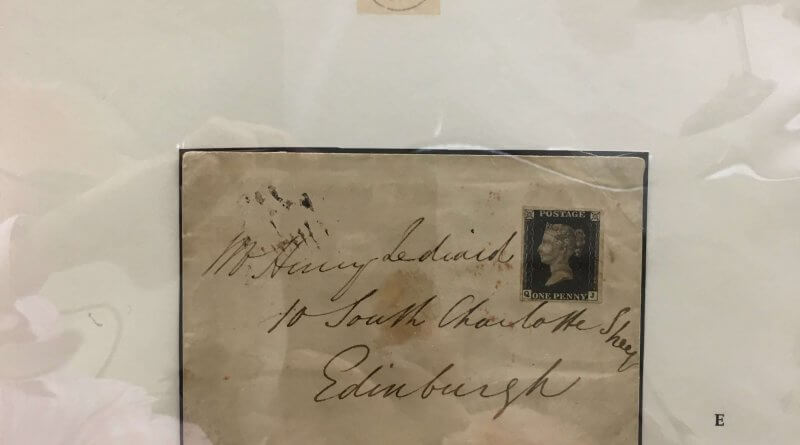 POSTAGE
Q ONE PENNY J
Mr Henry Lediard
10 South Charlotte Street
Edinburgh
E